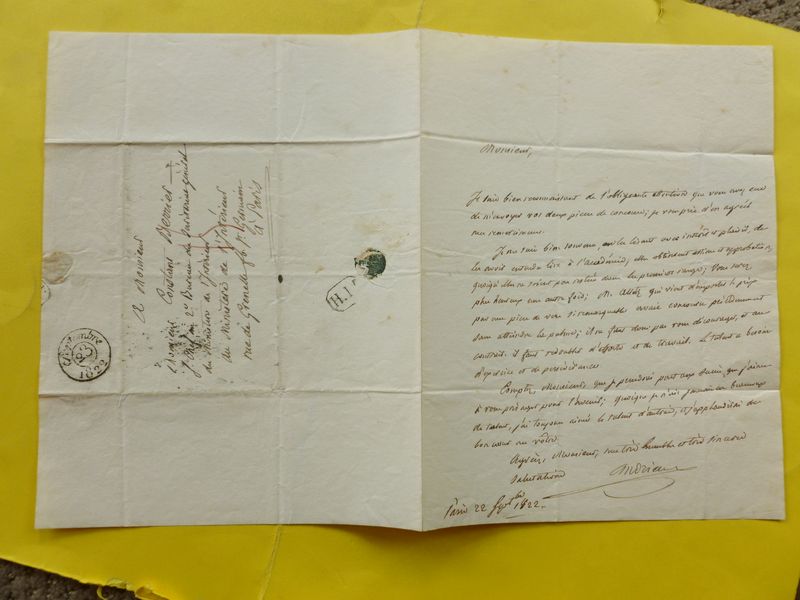 A Monsieur
Monsieur Constant Berrier
S. Chef au 2e Bureau du Secrétariat général
du Ministère de l'Intérieur
au Ministère de l'Intérieur
rue de Grenelle fb St Germain
à Paris
Septembre
23
1822
Monsieur,
Je suis bien reconnaissant de l'obligeante attention que vous avez eue
de m'envoyer vos deux pièces de concours; je vous prie d'en agréer
mes remerciemens.
Je me suis bien souvenu, en les lisant avec intérêt et plaisir, de
les avoir entendu lire à l'académie; elles obtinrent estime et approbation,
quoiqu'elles ne soient pas restées dans les premiers rangs; Vous serez
plus heureux une autre fois; M. qui vient d'emporter le prix
par une pièce de vers si remarquable avait concouru précédemment
sans atteindre la palme; il ne faut donc pas vous décourager, et au
contraire il faut redoubler d'efforts et de travail. Le talent a besoin
d'exercice et de persévérance.
Comptez, Monsieur, que je prendrai part aux succès que j'aime
à vous présager pour l'avenir; Quoique je n'aie jamais eu beaucoup
de talent, j'ai toujours aimé le talent d'autrui, et j'applaudirai de
bon cœur au vôtre.
Agréez, Monsieur, mes très humbles et très sincères
salutations
Paris 22 1822.